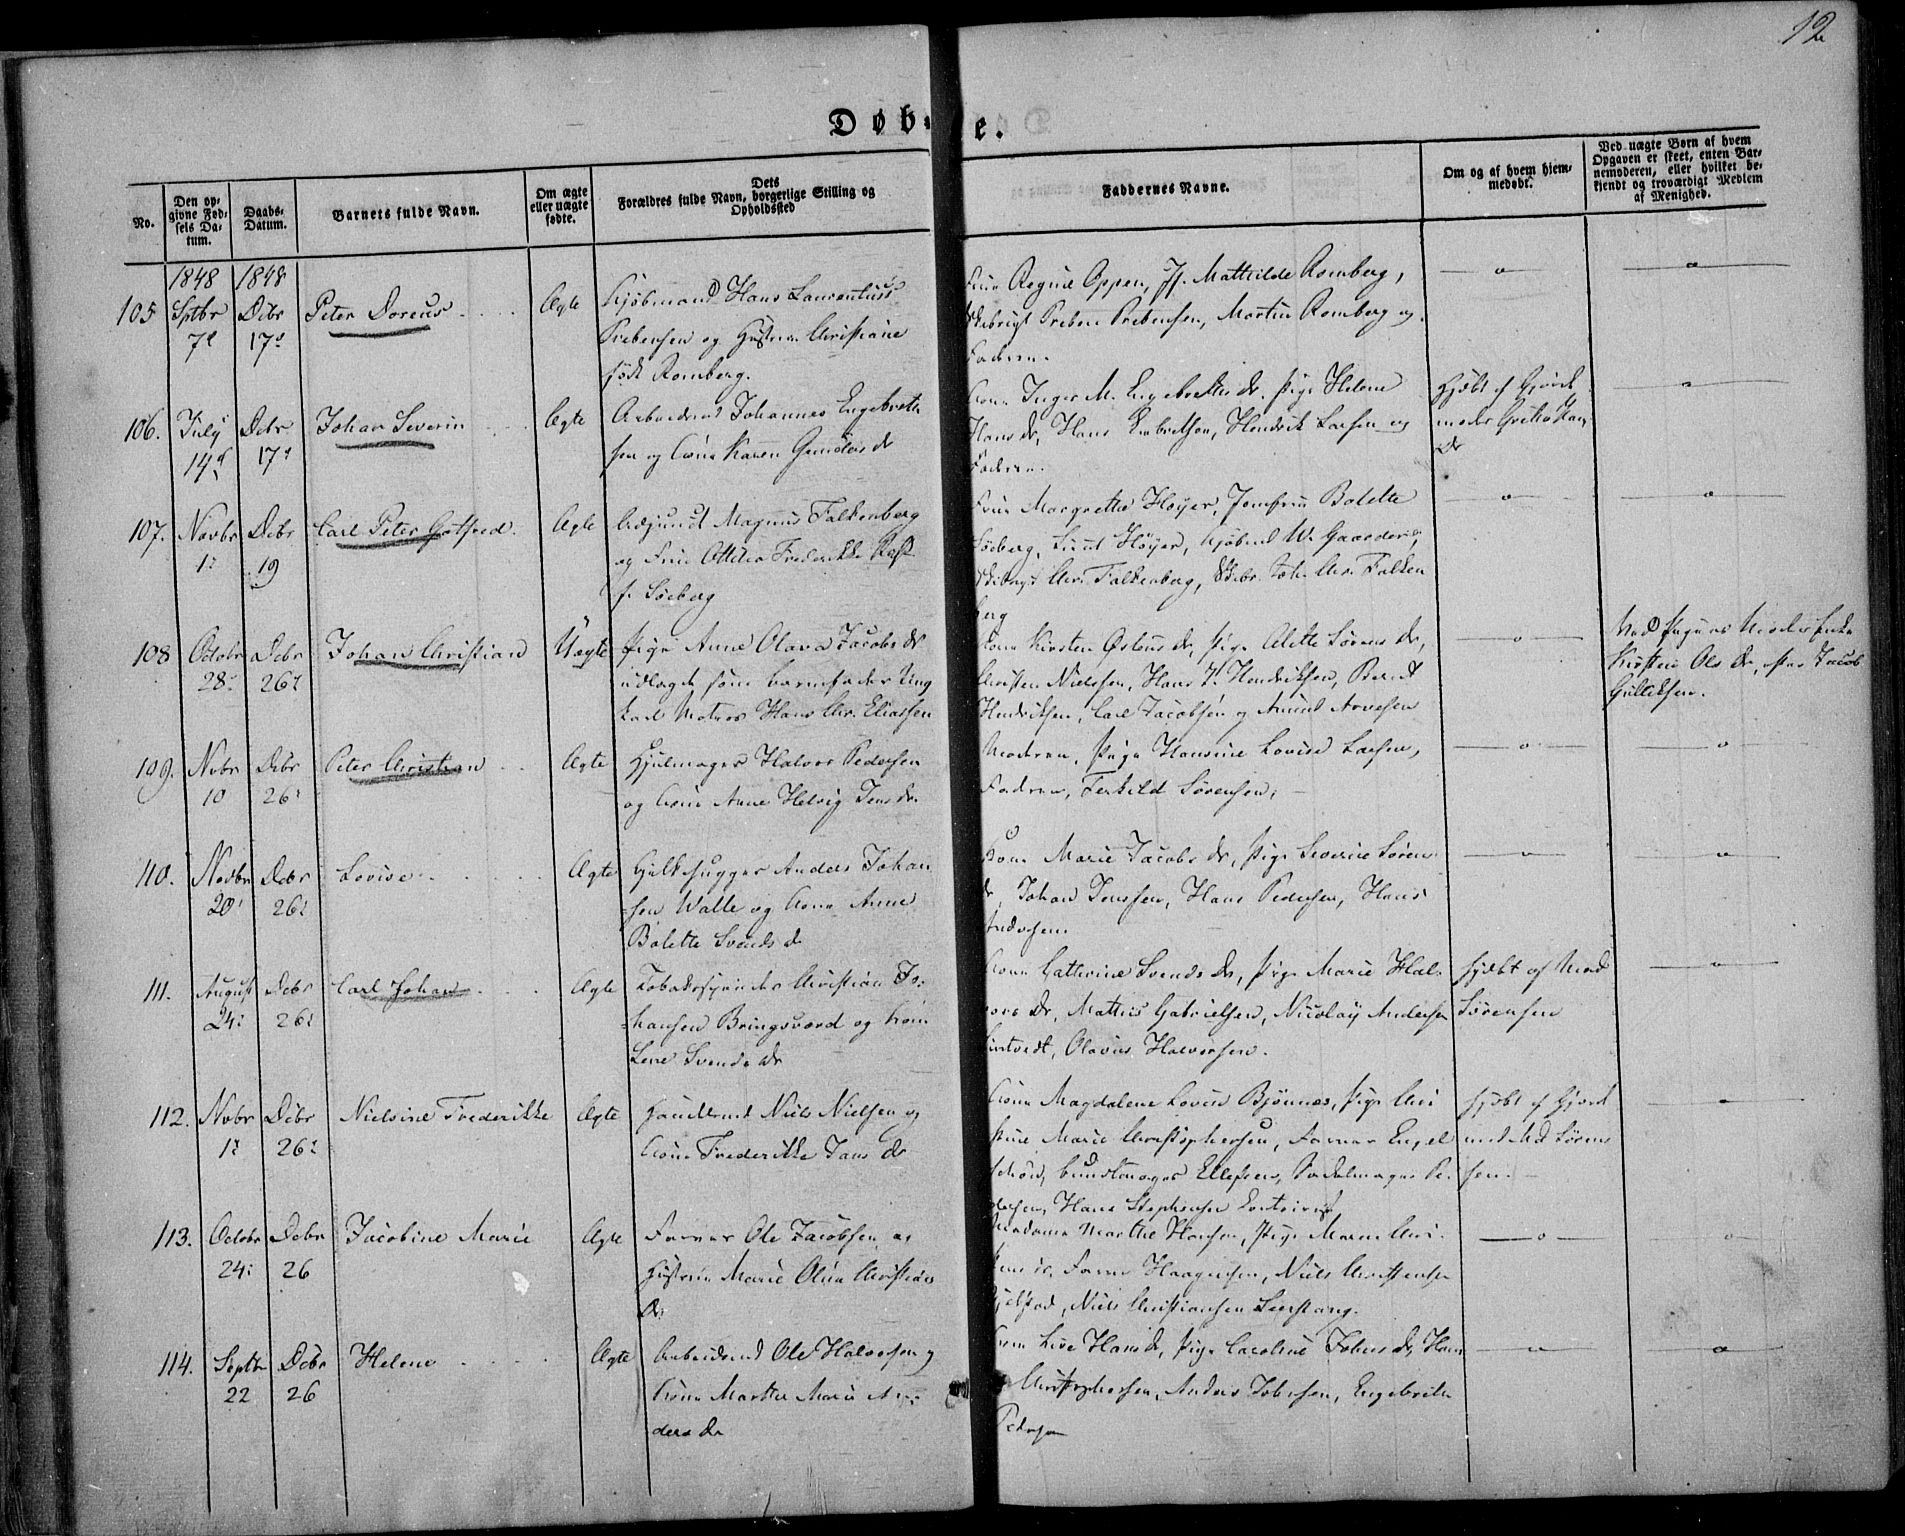 12
Døbte.
No.
Den opgivne Fødsels Datum.
Daabs-Datum.
Barnets fulde Navn.
Om ægte eller uægte fødte.
Dets Forældres fulde Navn, borgerlige Stilling og Opholdssted
Faddernes Navne.
Om og af hvem hjemmedøbt.
Ved uægte Børn af hvem Opgaven er skeet, enten Barnemoderen, eller hvilket bekjendt og troværdigt Medlem af Menighed.
1848 1848
105 Septbr 7de Debr 17de Peter Doreus Ægte
Kjøbmand Hans Laurentius
Prebensen og Hustru Christiane
født Romberg.
Frue Regine Oppen, Jf. Mathilde Romberg,
Preben Prebensen, Martin Romberg og
Faderen.
106. July 14de Debr 17de Johan Severin Ægte
Arbeidsmd Johannes Engebreth
sen og Kone Karen Gunders Dr
Kone Inger M. Engebrethsdr. Pige Helene
Hans Dr, Hans Embretsen, Hendrik Larsen og
Faderen.
Hjdbt af Gjord
moder Grethe Han
Dr
107. Novbr 1ste Debr 19 Carl Peter Gotfred. Ægte
Adjunct Magnus Falkenberg
og Frue Ottilia Frederikke
f. Søeberg
Frue Margrethe Høyer, Jomfru Bolette
Søeberg, Høyer, Kjøbmd W. Gaarder
Chr. Falkenberg, Joh. Chr. Falken
berg
108 Octobr 28de Debr 26de Johan Christian Uægte
Pige Anne Olava Jacobs Dr
udlagt som barnefader Ung
karl Matros Hans Chr. Eliassen
Kone Kirsten Østens Dr, Pige Alette Sørens Dr,
Christen Nielssen, Hans H. Hendriksen, Berent
Hendriksen, Carl Jacobsen og Amund Arvesen
Ved Pigens Moder Enke
Kirsten Ols Dr, efter Jacob
Gulliksen.
109. Novbr 10 Debr 26de Peter Christian Ægte
Hjulmager Halvor Pedersen
og Kone Anne Helvig Jens Dr.
Moderen, Pige Hansine Lovise Larsen,
Faderen, Terkild Sørensen,
110. Novbr 20de Debr 26de Lovise Ægte
Anders Johan
sen Walle og Kone Anne
Bolette Svends Dr
Kone Marie Jacobs Dr, Pige Severine Søren
Dr, Johan Jenssen, Hans Pedersen, Hans
Andersen.
111. August 24de Debr 26de Carl Johan Ægte
Tobakspinder Christian Jo-
hansen Bringsværd og Kone
Lene Svends Dr
Kone Cathrine Svends Dr, Pige Marie Hal-
vors Dr, Mathis Gabrielsen, Nicolay Andersen
Olavus Halvorsen.
Hjdbt af Mad
Sørensen
112. Novbr 1ste Debr 26de Nielsine Frederikke Ægte
Handlsmd Niels Nielsen og
Kone Frederikke Jans Dr
Kone Magdalene Lovise Bjønnes, Pige Chri
stine Marie Christophersen, Farver Engel
Schou, Bundtmager Ellefsen, Sadelmager Pe-
dersen, Hans Stephensen
Hjdbt af Gjord
mod Md Søren
sen.
113. Octobr 24de Debr 26 Jacobine Marie Ægte
Farver Ole Jacobsen og
Hustrue Marie Olea Christians
Dr
Madame Marthe Hansen, Pige Maren Chri-
stens Dr, Farver Haagensen, Niels Christensen
Niels Christiansen
114. Septbr 22 Debr 26 Helene Ægte
Arbeidsmd Ole Halvorsen og
Kone Marthe Marie An-
ders Dr
Kone Lise Hans Dr, Pige Caroline Johns Dr, Hans
Christophersen, Anders Johnsen, Engebreth
Pedersen